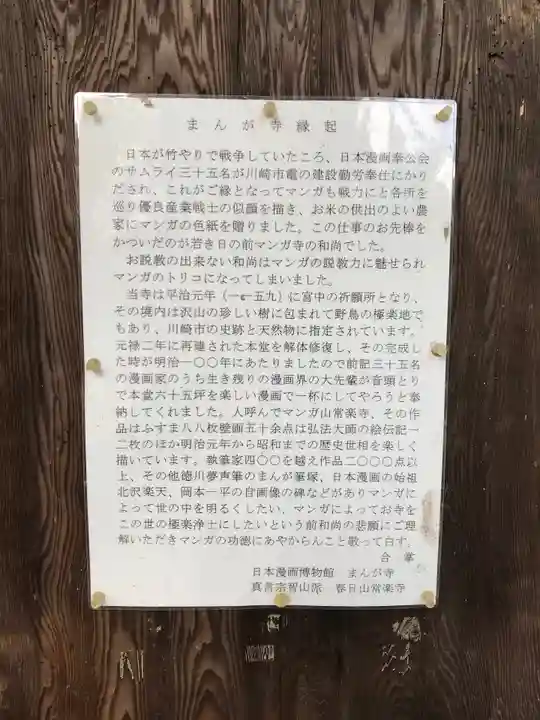 まんが寺縁起
日本が竹やりで戦争していたころ、日本漫画奉公会
のサムライ三十五名が川崎市電の建設勤労奉仕にかり
だされ、これがご縁となってマンガも戦力にと各所を
巡り優良産業戦士の似顔を描き、お米の供出のよい農
家にマンガの色紙を贈りました。この仕事のお先棒を
かついだのが若き日の前マンガ寺の和尚でした。
お説教の出来ない和尚はマンガの説教力に魅せられ
マンガのトリコになってしまいました。
当寺は平治元年(一一五九)に宮中の祈願所となり、
その境内は沢山の珍しい樹に包まれて野鳥の極楽地で
もあり、川崎市の史跡と天然物に指定されています。
元禄二年に再建された本堂を解体修復し、その完成し
た時が明治一〇〇年にあたりましたので前記三十五名
の漫画家のうち生き残りの漫画界の大先輩が音頭とり
で本堂六十五坪を楽しい漫画で一杯にしてやろうと奉
納してくれました。人呼んでマンガ山常楽寺、その作
品はふすま八八枚壁画五十余点は弘法大師の絵伝記一
二枚のほか明治元年から昭和までの歴史世相を楽しく
描いています。執筆家四〇〇を越え作品二〇〇〇点以
上、その他徳川夢声筆のまんが筆塚、日本漫画の始祖
北沢楽天、岡本一平の自画像の碑などがありマンガに
よって世の中を明るくしたい、マンガによってお寺を
この世の極楽浄土にしたいという前和尚の悲願にご理
解いただきマンガの功徳にあやからんこと敬って白す。
合掌
日本漫画博物館 まんが寺
真言宗智山派 春日山常楽寺